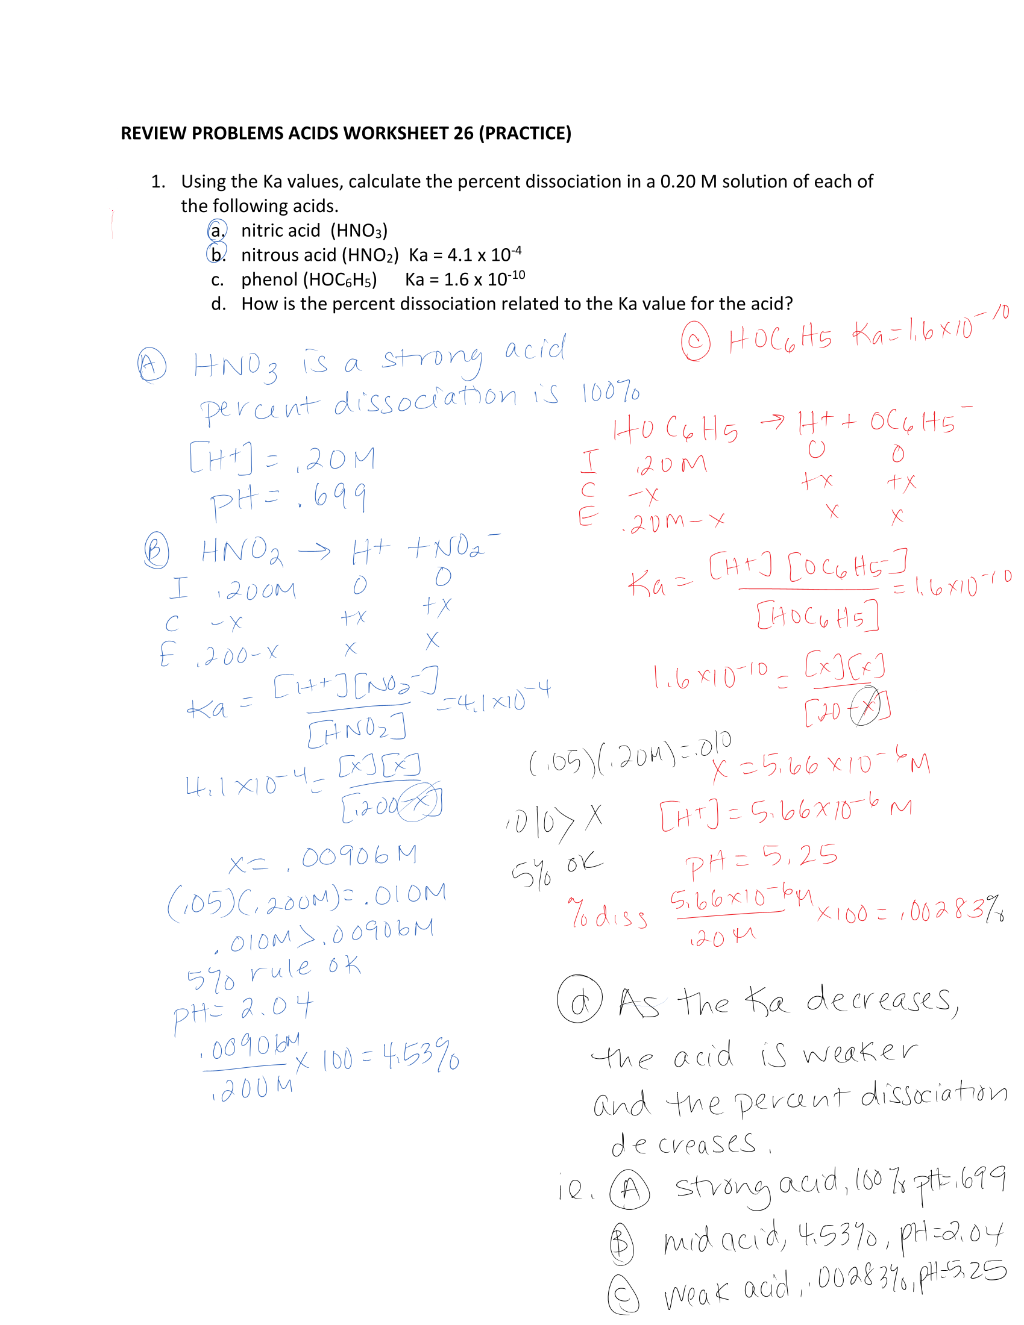 REVIEW PROBLEMS ACIDS WORKSHEET 26 (PRACTICE)
1. Using the Ka values, calculate the percent dissociation in a 0.20 M solution of each of
the following acids.
a. nitric acid (HNO₃)
b. nitrous acid (HNO₂) Ka = 4.1 x 10⁻⁴
c. phenol (HOC₆H₅) Ka = 1.6 x 10⁻¹⁰
d. How is the percent dissociation related to the Ka value for the acid?
Ⓐ HNO₃ is a strong acid
percent dissociation is 100%
[H+] = .20M
pH = .699
Ⓑ HNO₂ → H+ + NO₂⁻
I .200M 0 0
C -x +x +x
E .200-x x x
Ka = [H+][NO₂⁻] / [HNO₂] = 4.1x10⁻⁴
4.1x10⁻⁴ = [x][x] / [.200-x]
x = .00906M
(.05)(.200M) = .010M
.010M > .00906M
5% rule ok
pH = 2.04
.00906M / .200M x 100 = 4.53%
Ⓒ HOC₆H₅ Ka = 1.6x10⁻¹⁰
HOC₆H₅ → H+ + OC₆H₅⁻
I .20M 0 0
C -x +x +x
E .20M-x x x
Ka = [H+][OC₆H₅⁻] / [HOC₆H₅] = 1.6x10⁻¹⁰
1.6x10⁻¹⁰ = [x][x] / [.20-x]
(.05)(.20M) = .010
x = 5.66x10⁻⁶M
.010 > x
[H+] = 5.66x10⁻⁶ M
5% ok
pH = 5.25
% diss 5.66x10⁻⁶M / .20M x100 = .00283%
ⓓ As the Ka decreases,
the acid is weaker
and the percent dissociation
decreases.
ie. Ⓐ strong acid, 100% pH=.699
Ⓑ mid acid, 4.53%, pH=2.04
Ⓒ weak acid, .00283%, pH=5.25